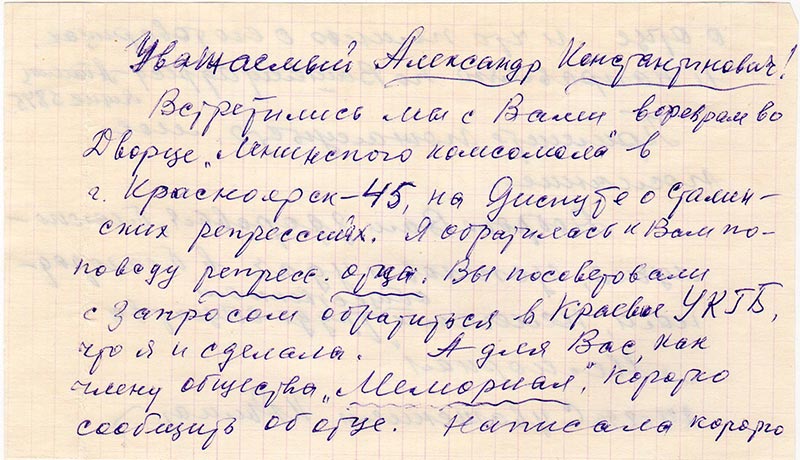 Уважаемый Александр Константинович!
Встретились мы с Вами в феврале во
Дворце „Ленинского комсомола" в
г. Красноярск-45, на диспуте о сталин-
ских репрессиях. Я обратилась к Вам по-
поводу репресс. отца. Вы посоветовали
с запросом обратиться в Краевое УКГБ,
что я и сделала. А для Вас, как
члену общества „Мемориал", коротко
сообщить об отце. Написала коротко